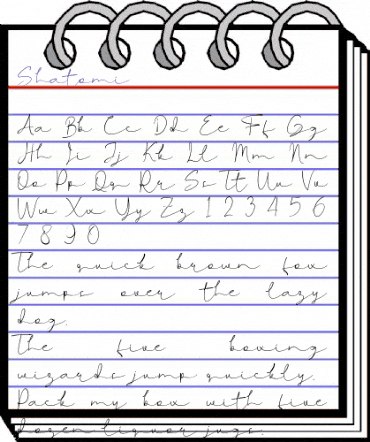 Shatomi
Aa Bb Cc Dd Ee Ff Gg
Hh Ii Jj Kk Ll Mm Nn
Oo Pp Qq Rr Ss Tt Uu Vv
Ww Xx Yy Zz 1 2 3 4 5 6
7 8 9 0
The quick brown fox
jumps over the lazy
dog.
The five boxing
wizards jump quickly.
Pack my box with five
dozen liquor jugs.